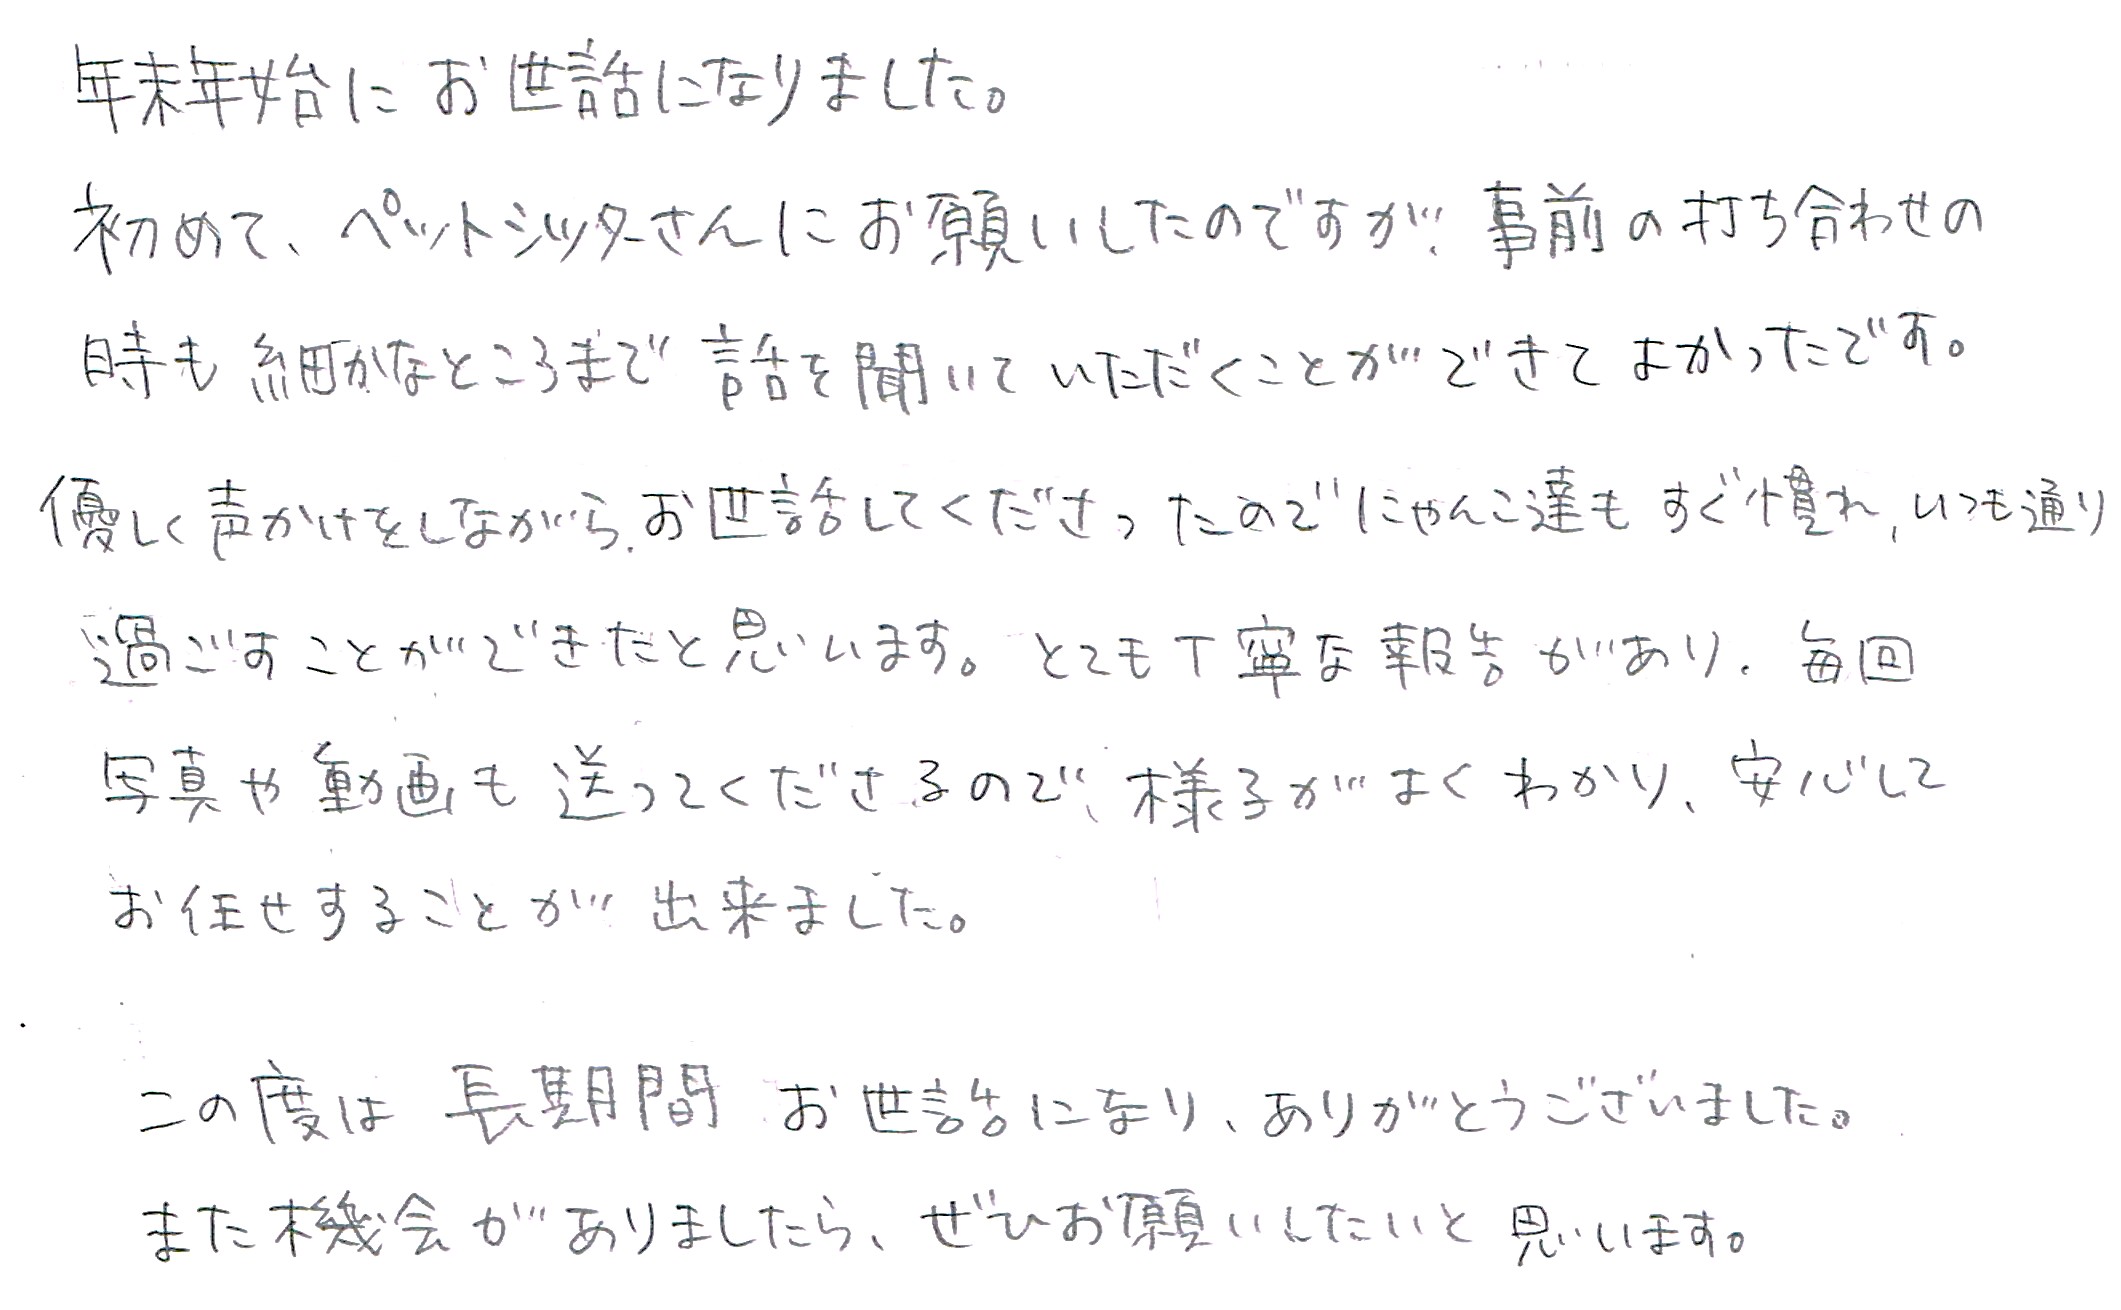 年末年始にお世話になりました。
初めて、ペットシッターさんにお願いしたのですが、事前の打ち合わせの
時も細かなところまで話を聞いていただくことができてよかったです。
優しく声かけをしながら、お世話してくださったのでにゃんこ達もすぐ慣れ、いつも通り
過ごすことができたと思います。とても丁寧な報告があり、毎回
写真や動画も送ってくださるので、様子がよくわかり、安心して
お任せすることが出来ました。
この度は長期間お世話になり、ありがとうございました。
また機会がありましたら、ぜひお願いしたいと思います。